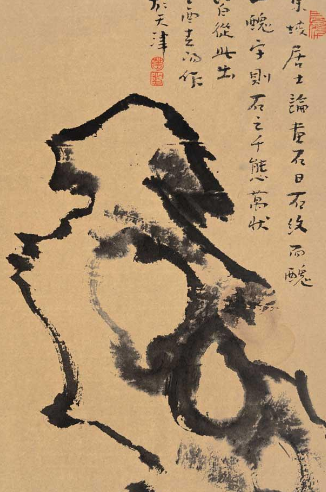 東坡居士論畫石曰石紋而醜
一醜字則石之千態萬狀
皆從此出
酉春日作
於天津